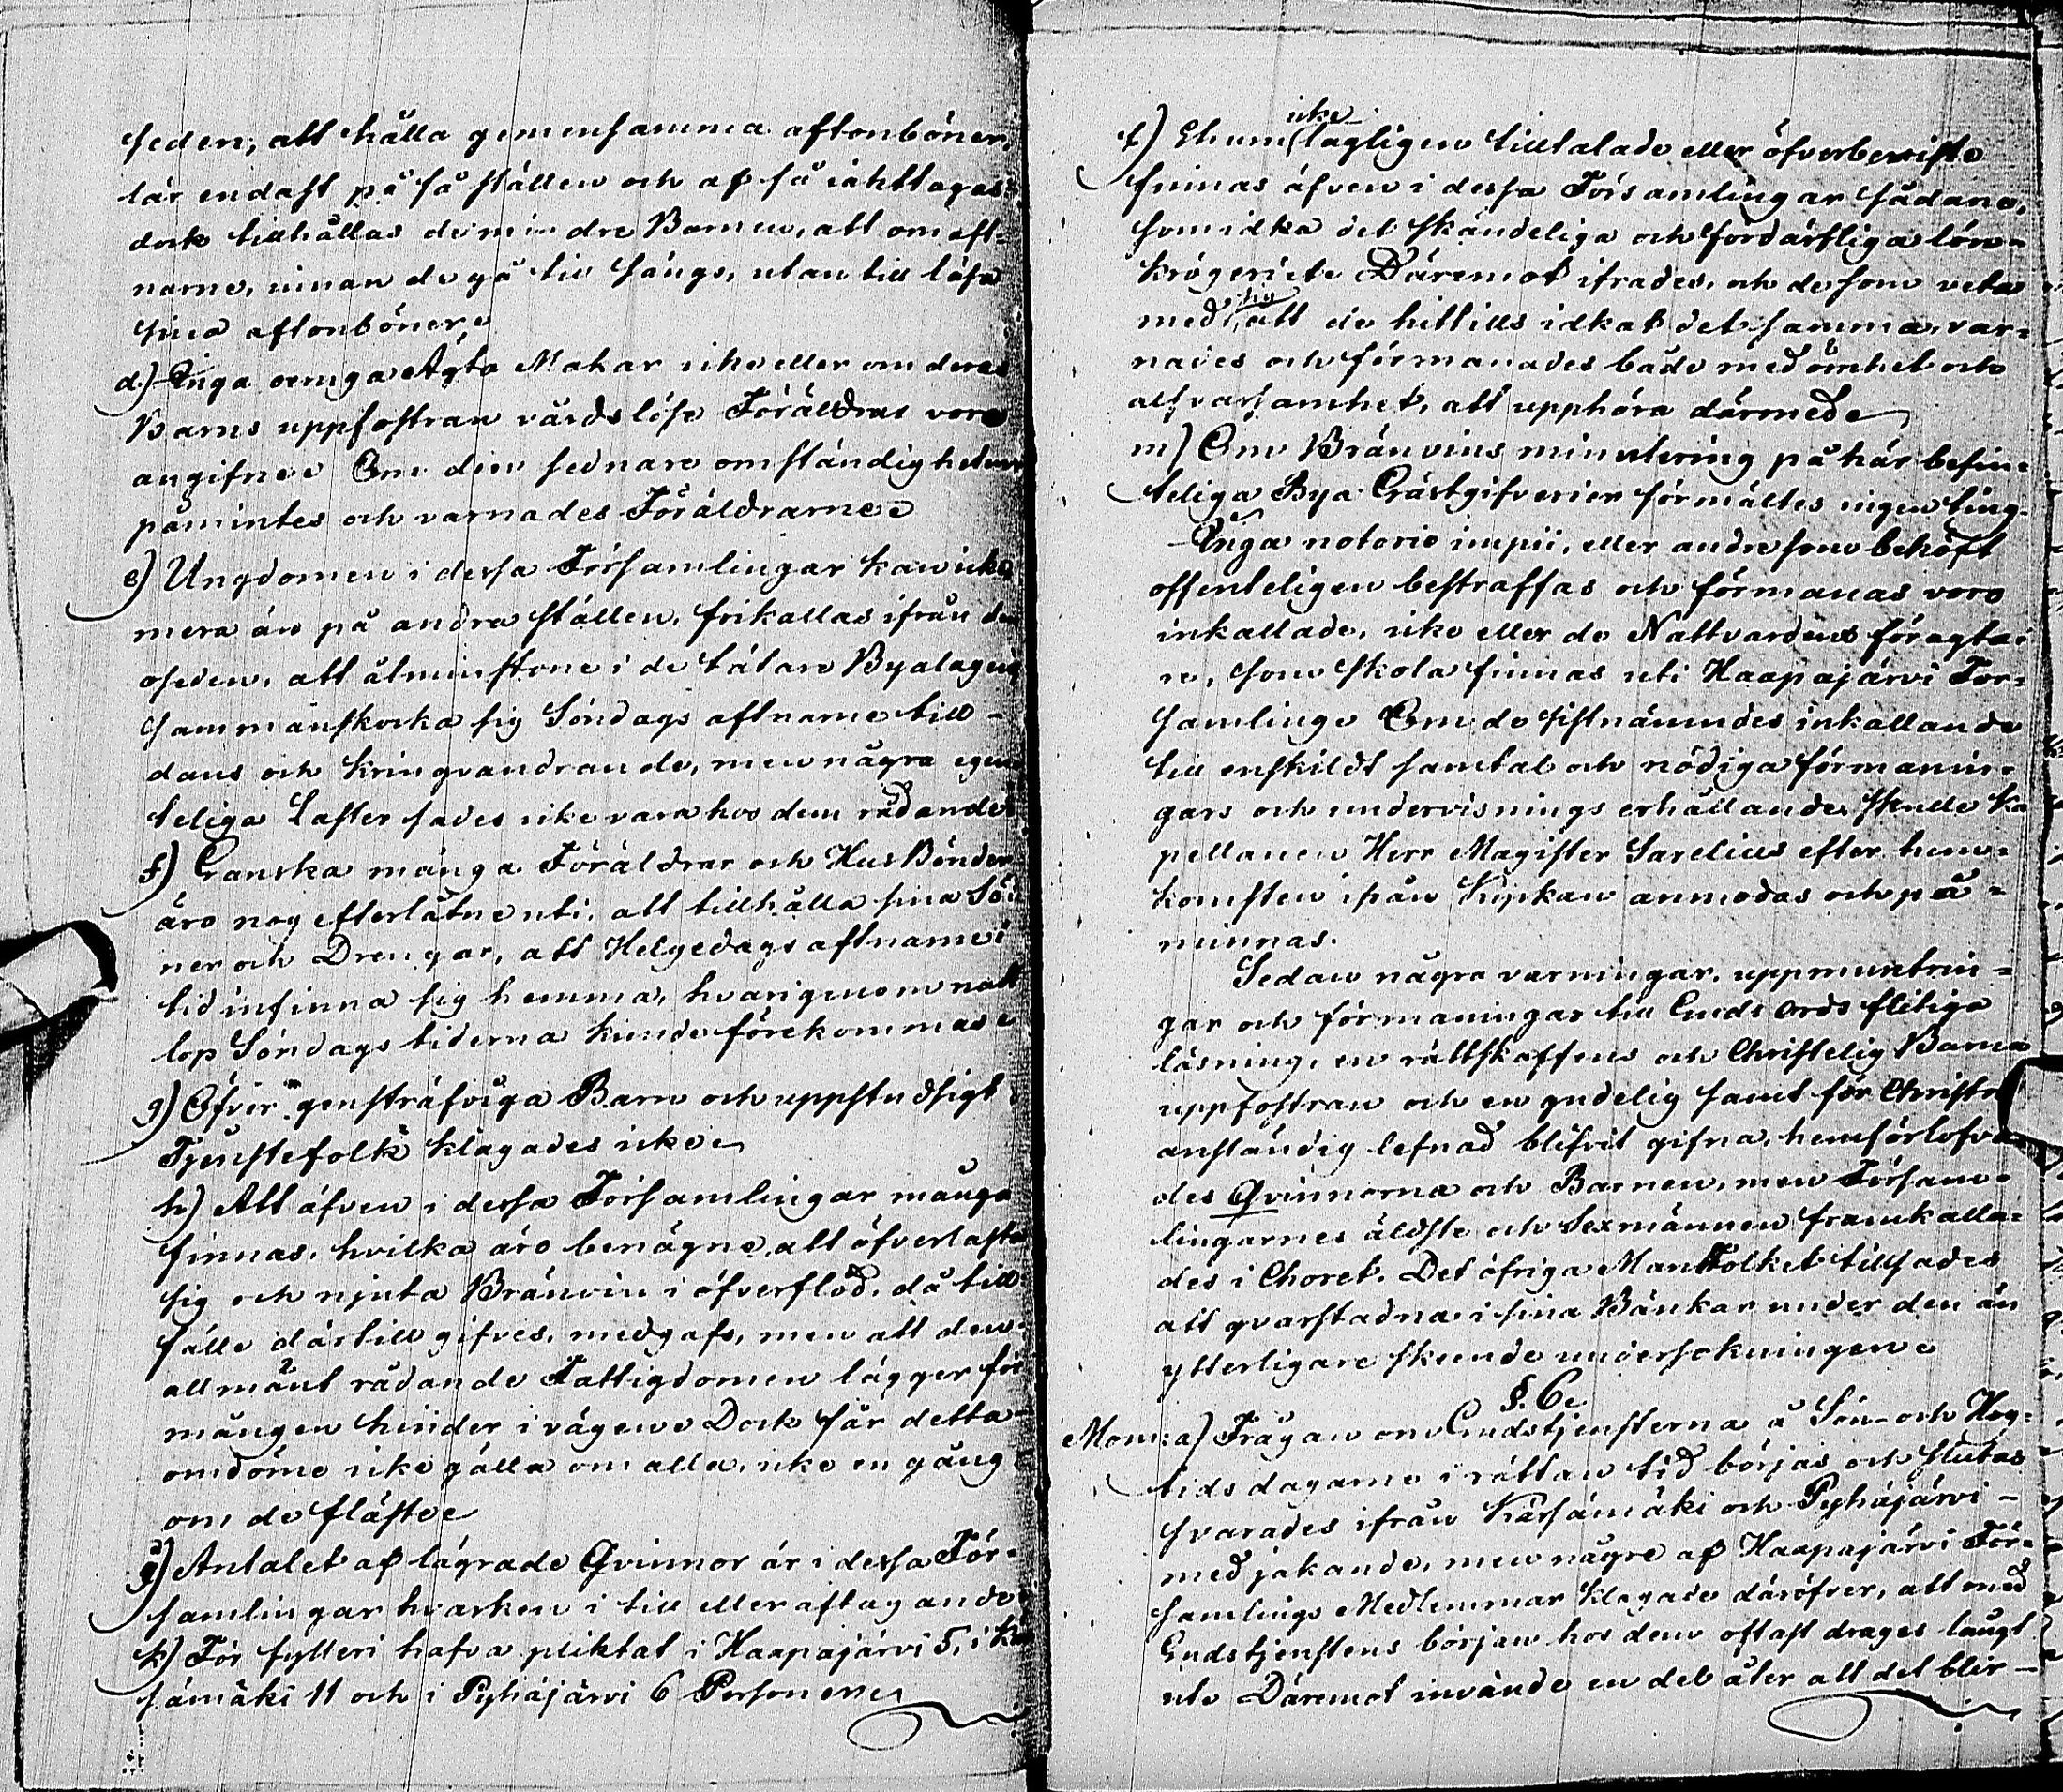 seden, att hålla gemensamma aftonböner,
lär endast på få ställen och af få iakttagas:
dock tillhållas de mindre Barnen, att om aft-
narne, innan de gå till sängs, utan till läsa
sina aftonböner.
d.) Inga oeniga Ägta Makar icke eller om deras
Barns uppfostran vårdslöse Föräldrar voro
angifne. Om den sednare omständigheten
påmintes och varnades Föräldrarne.
e) Ungdomen i dessa Församlingar kan icke
mera än på andra ställen, frikallas ifrån den
oseden, att åtminstone i de tätare Byalagen
sammanskocka sig Söndags aftnarne till
dans och kringvandrande, men några egen-
teliga Laster sades icke vara hos dem rådande
f) Ganska många Föräldrar och Husbönder
äro nog efterlåtne uti, att tillhålla sina Sö-
ner och Drengar, att Helgedags aftnarne i
tid infinna sig hemma, hvarigenom natt
lop Söndags tiderna kunde förekommas.
g) Öfver gensträfviga Barn och uppstudsigt
Tjenstefolk klagades icke.
h) Att äfven i dessa Församlingar många
finnas, hvilka äro benägne, att öfverlasta
sig och njuta Bränvin i öfverflöd, då till-
fälle därtill gifves, medgafs, men att den
allmänt rådande Fattigdomen lägger för
mången hinder i vägen. Dock får detta
omdöme icke gälla om alla, icke en gång
om de fläste.
i) Antalet af lägrade Qvinnor är i dessa För-
samlingar hvarken i till eller aftagande
k) För fylleri hafva pliktat i Haapajärvi 5, i Kär
sämäki 11 och i Pyhäjärvi 6 Personer.
l) Ehuru icke lagligen tilltalade eller öfverbeviste
finnas äfven i dessa Församlingar sådane,
som idka det skändeliga och fordärfliga lön-
krögeriet. Däremot ifrades, och de som veta
med sig att de hittills idkat det samma, var-
nades och förmanades både med ömhet och
alfvarsamhet, att upphöra därmed.
m) Om Bränvins minutering på här befin-
teliga Bya Gästgifverier förmältes ingen ting.
Inga notorie impii, eller andre som behöft
offenteligen bestraffas och förmanas voro
inkallade, icke eller de Nattvardens föragta-
re, som skola finnas uti Haapajärvi För-
samling. Om de sistnämndes inkallande
till enskildt samtal och nödiga förmanin-
gars och undervisnings erhållande, skulle Ka
pellanen Herr Magister Sarelius efter hem-
komsten ifrån Kyrkan anmodas och på-
minnas.
Sedan några varningar, uppmuntrin-
gar och förmaningar till Guds Ords flitiga
läsning, en rättskaffens och Christelig Barna
uppfostran och en gudelig samt för Christn
anständig lefnad blifvit gifna, hemförlofva-
des Qvinnorna och Barnen, men Försam-
lingarnes äldste och Sexmännen framkalla-
des i Choret. Det öfriga Manfolket tillsades
att qvarstadna i sina Bänkar under den än
ytterligare skeende undersökningen.
§. 6.
Mom: a) Frågan om Gudstjensterna å Sön- och Hög-
tids dagarne i rättan tid börjas och slutas
svarades ifrån Kärsämäki och Pyhäjärvi
med jakande, men någre af Haapajärvi För-
samlings Medlemmar klagade däröfver, att med
Gudstjenstens början hos dem oftast drages långt
ut. Däremot invände en del åter att det blir